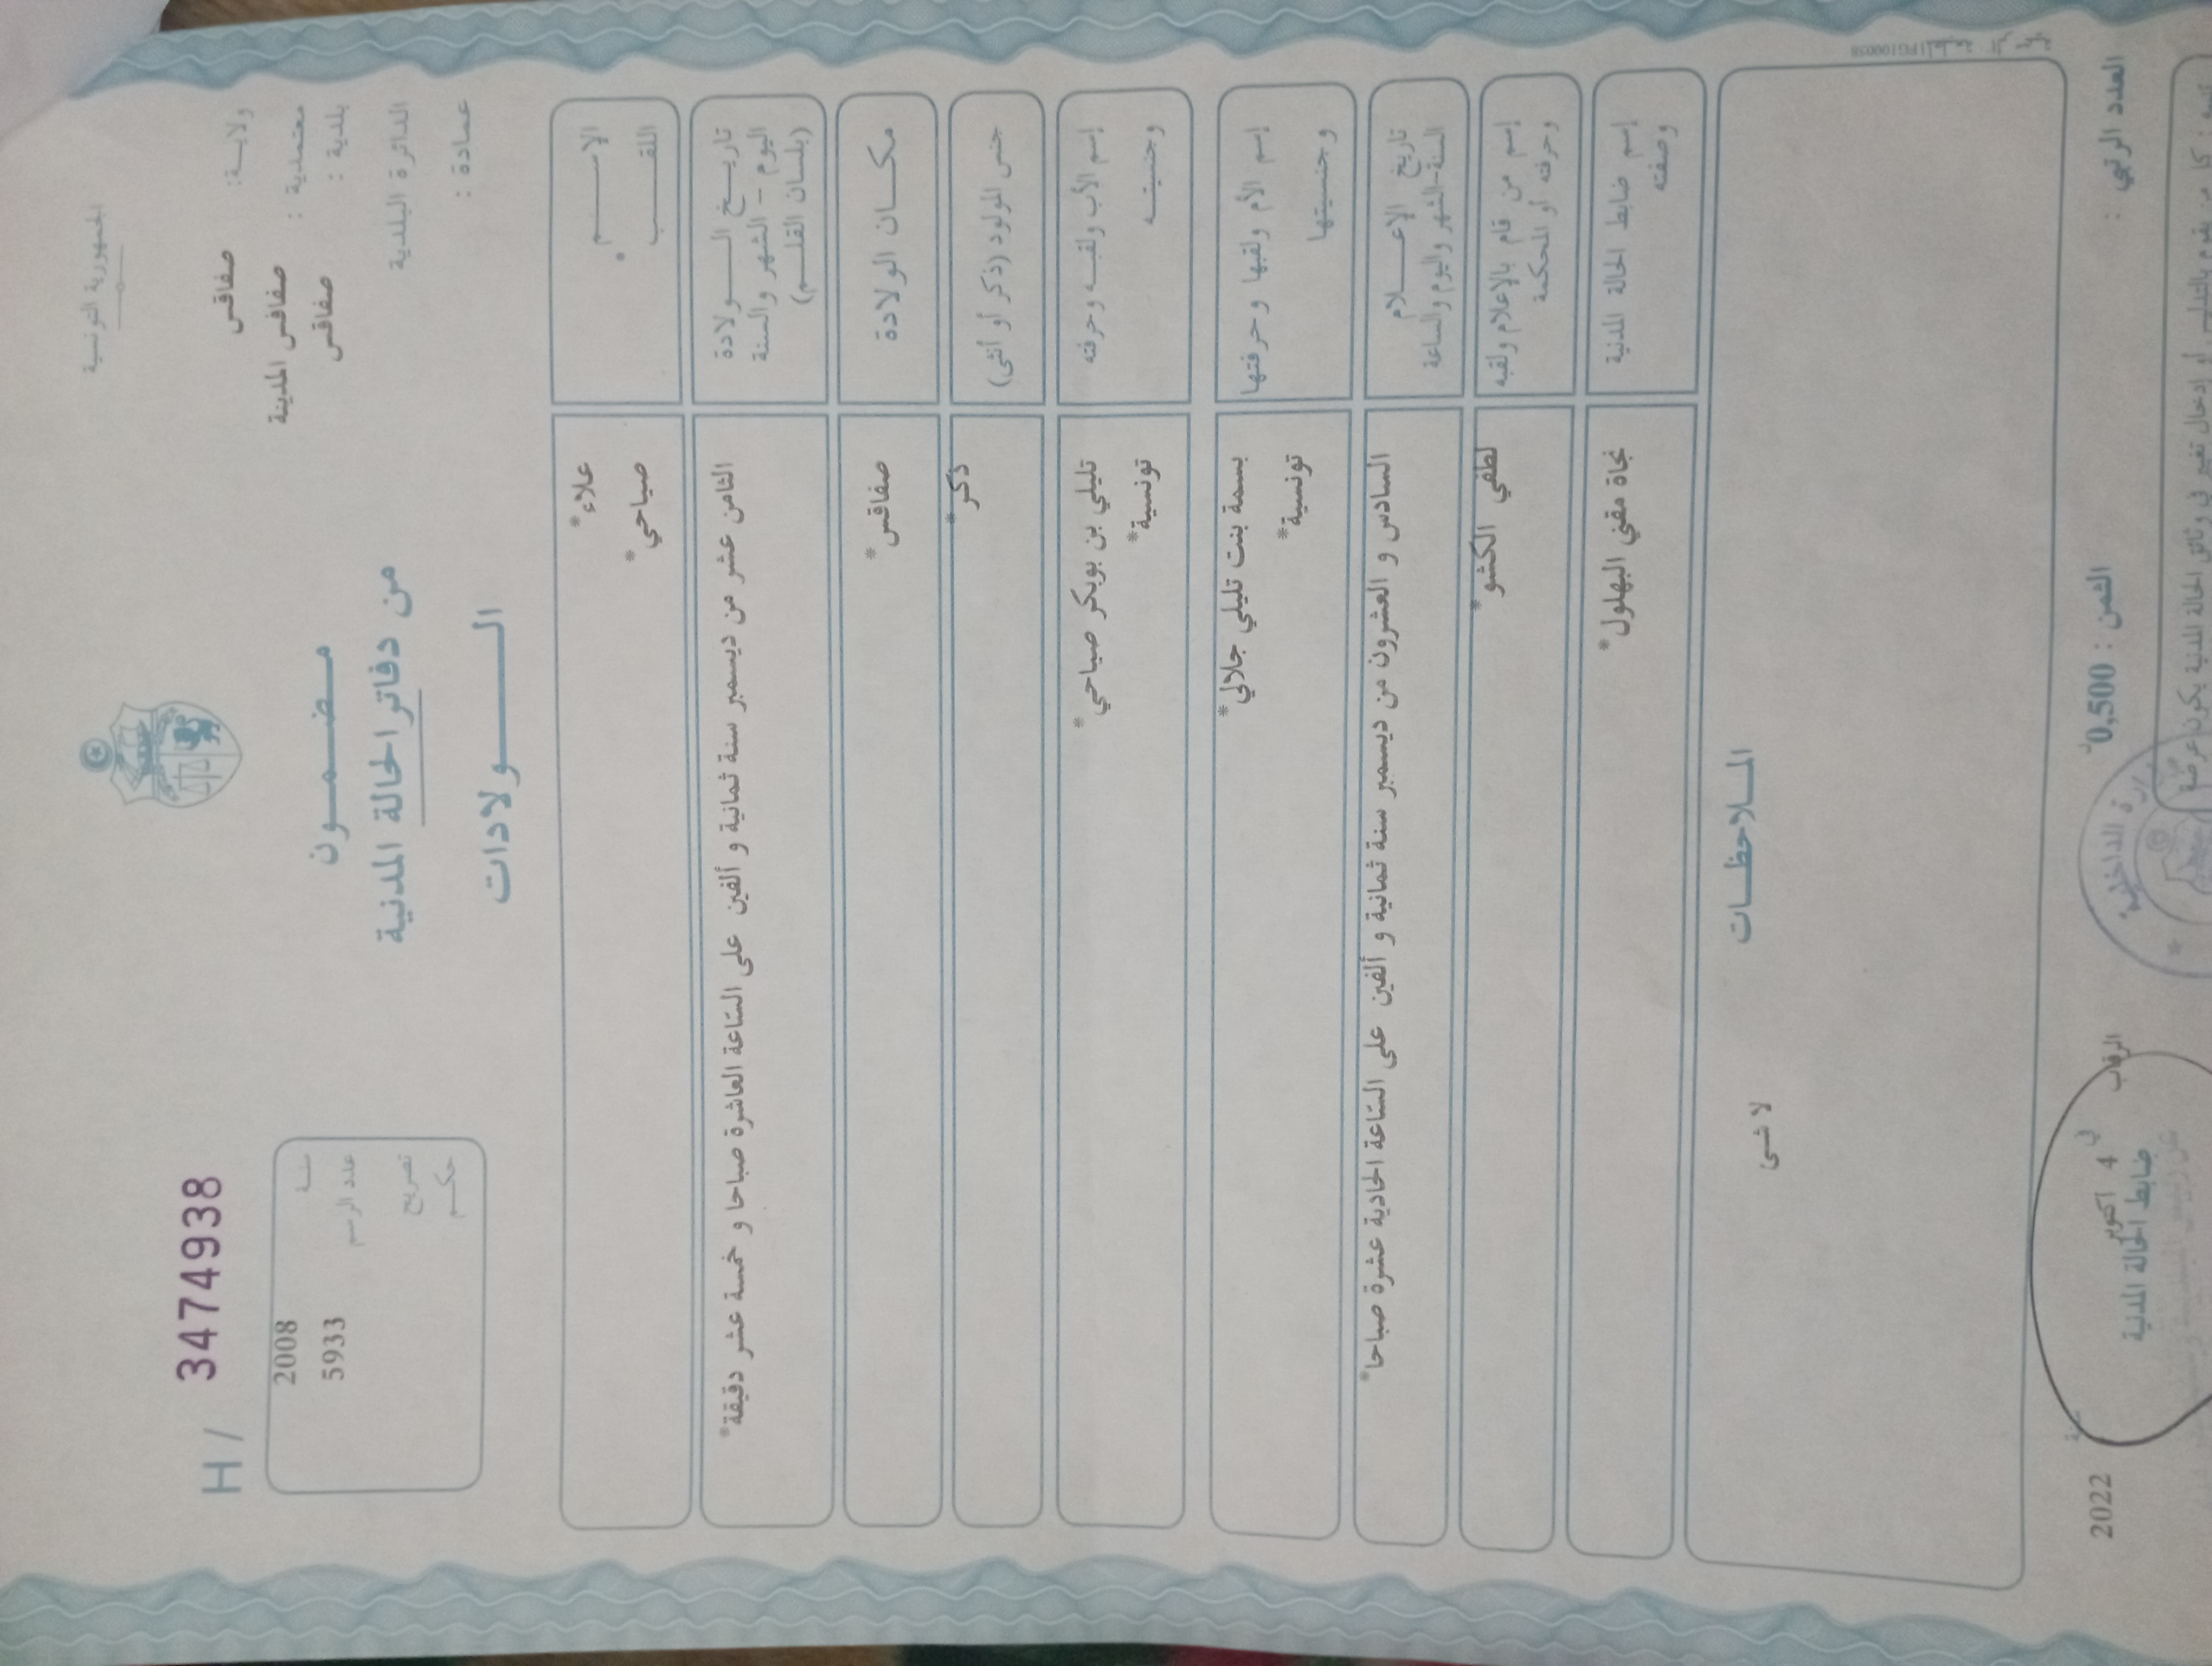 الجمهورية التونسية
ولاية: صفاقس
معتمدية : صفاقس المدينة
بلدية : صفاقس
الدائرة البلدية
عمادة :
مضمون
من دفاتر الحالة المدنية
الولادات
H / 3474938
سنة 2008
عدد الرسم 5933
تصريح
حكم
الإسم علاء*
اللقب صباحي*
تاريخ الولادة الثامن عشر من ديسمبر سنة ثمانية و ألفين على الساعة العاشرة صباحا و خمسة عشر دقيقة*
اليوم - الشهر والسنة
(بلسان القلم)
مكان الولادة صفاقس*
جنس المولود (ذكر أو أنثى) ذكر*
إسم الأب ولقبه وحرفته تليلي بن بوبكر صباحي*
وجنسيته تونسية*
إسم الأم ولقبها وحرفتها بسمة بنت تليلي جلالي*
وجنسيتها تونسية*
تاريخ الإعلام السادس و العشرون من ديسمبر سنة ثمانية و ألفين على الساعة الحادية عشرة صباحا*
السنة-الشهر واليوم والساعة
إسم من قام بالإعلام ولقبه لطفي الكشو*
وحرفته أو المحكمة
إسم ضابط الحالة المدنية نجاة مقني البهلول*
وصفته
الملاحظات
لا شئ
العدد الرتبي :
الثمن : 0,500
الرقاب في 4 أكتوبر سنة 2022
ضابط الحالة المدنية